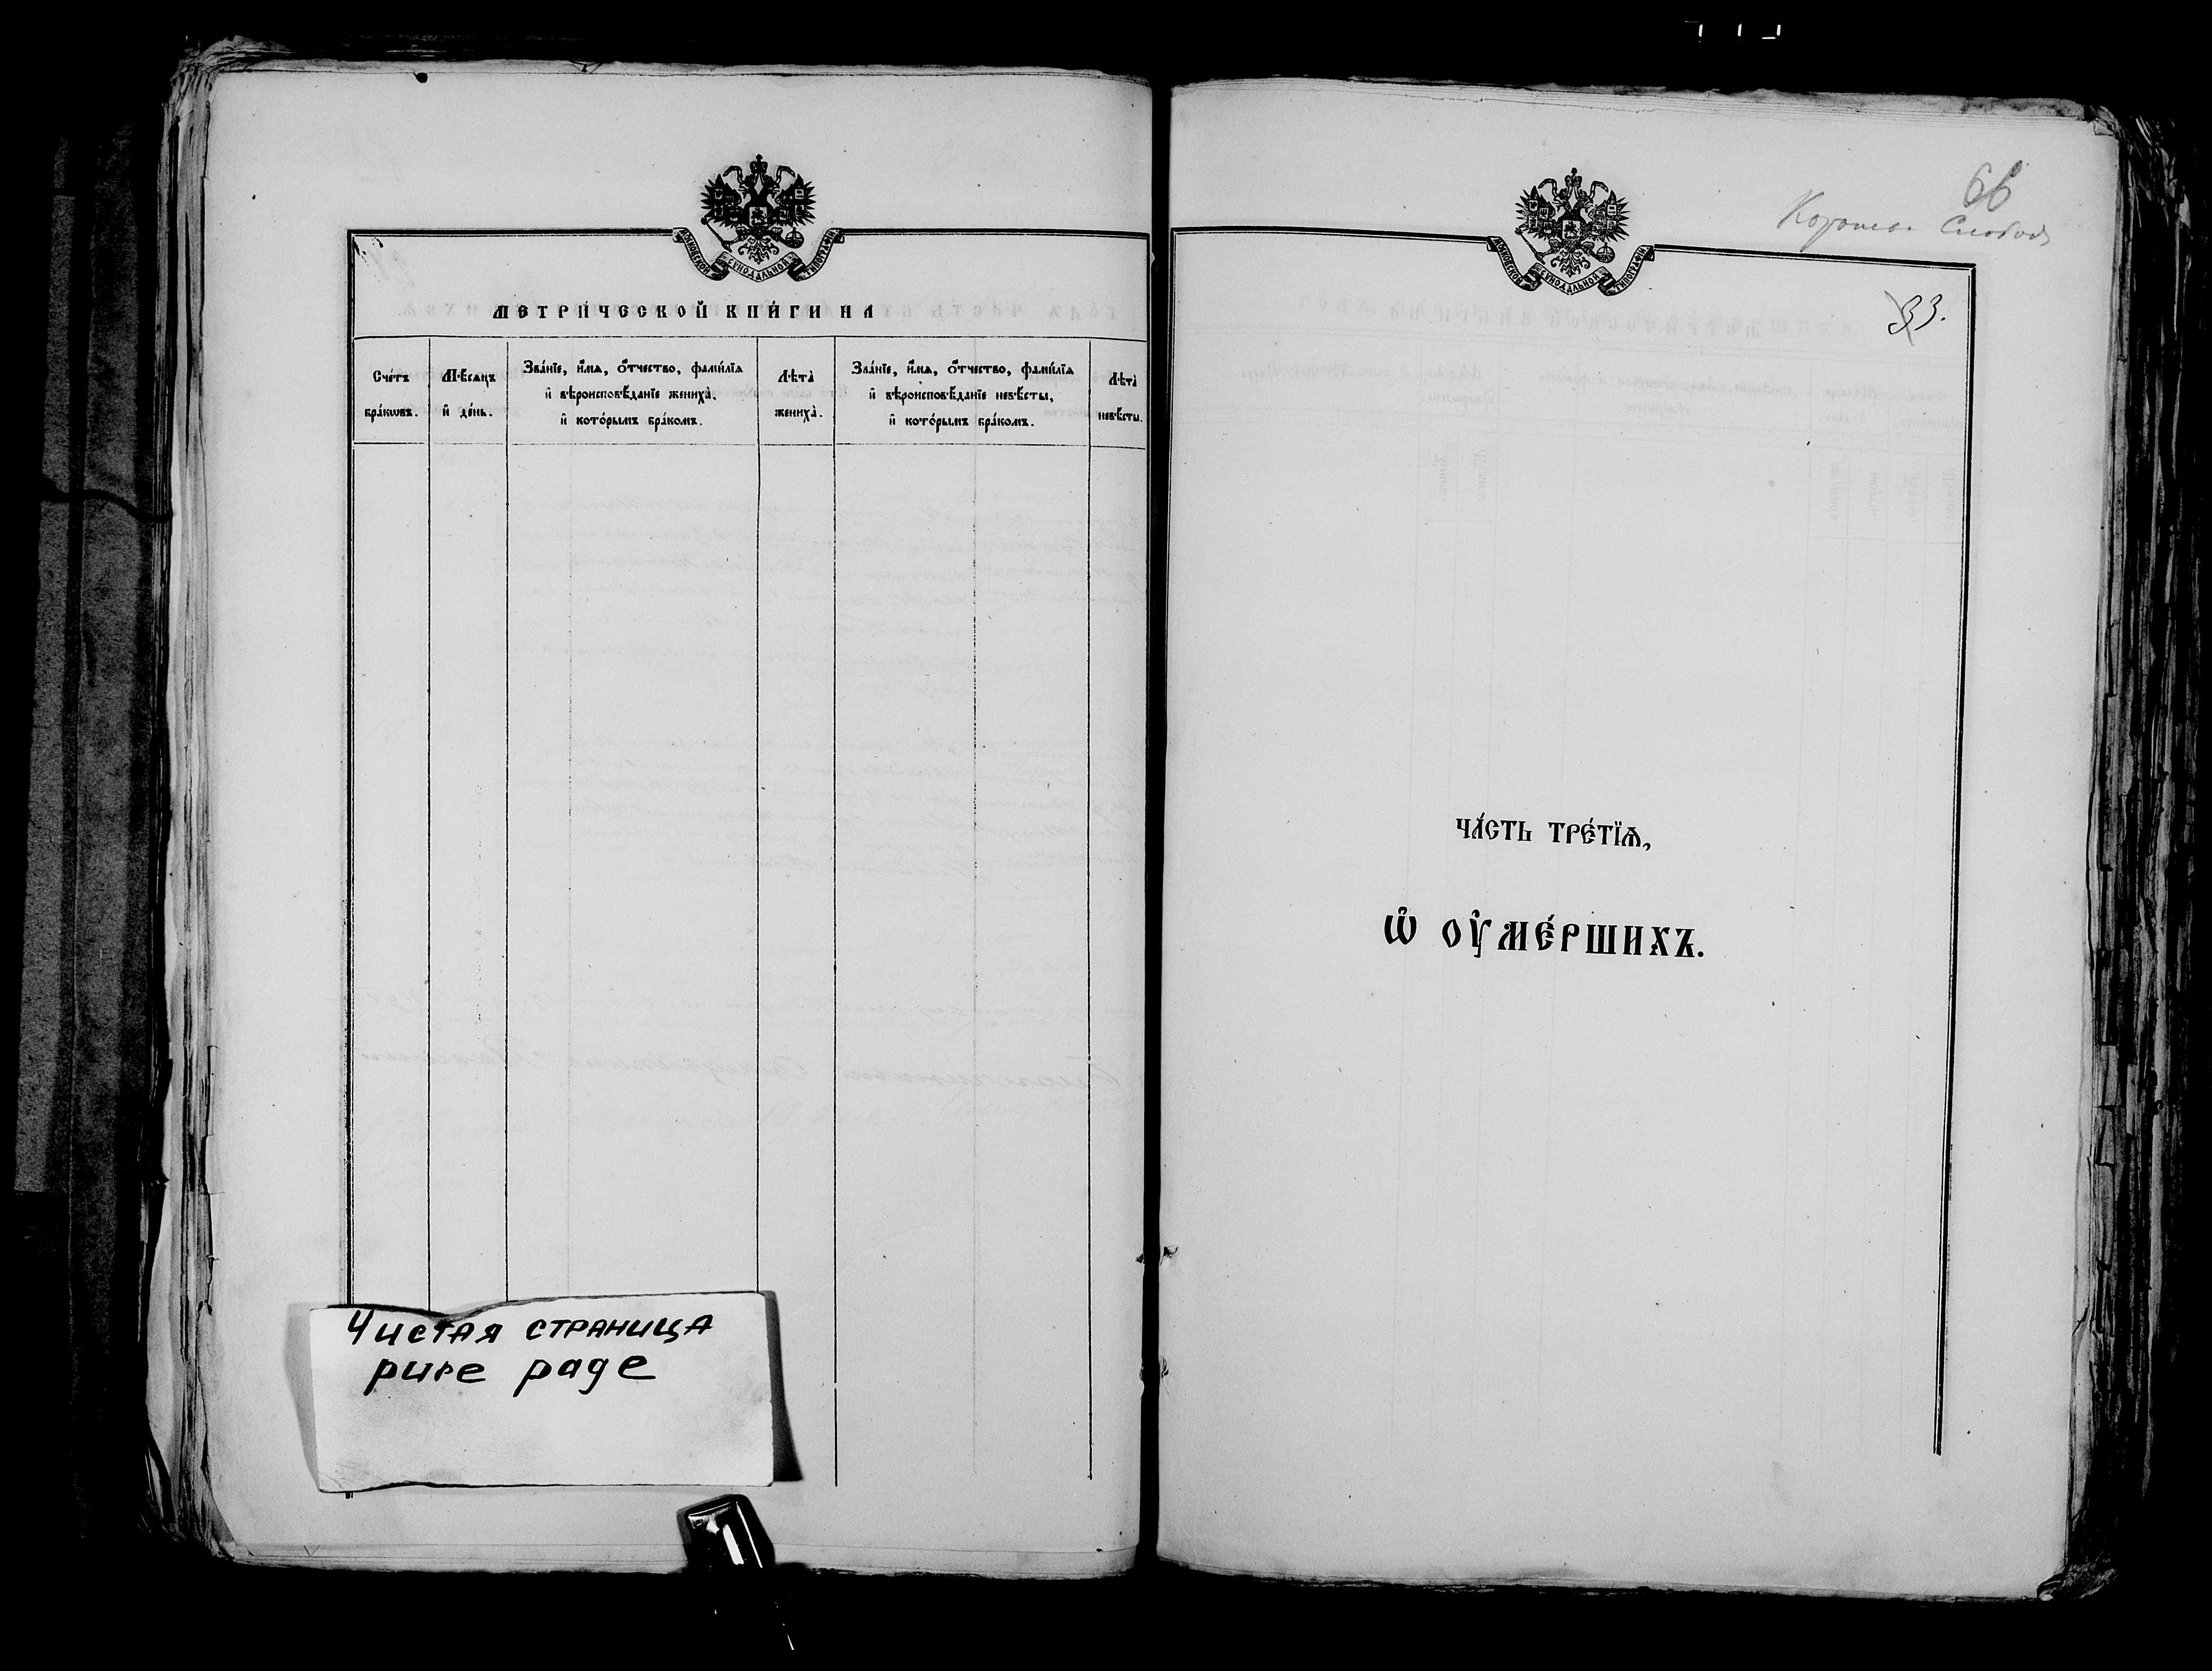 МОСКОВСКОЙ СѴНОДАЛЬНОЙ ТИПОГРАФІИ
МЕТРИ́ЧЕСКОЙ КНИ́ГИ НА
Сче́тъ бра́кѡвъ.
Мѣ́сѧцъ и҆ де́нь.
Зва́нїе, и҆́мѧ, ѻ҆́тчество, фами́лїѧ
и҆ вѣроисповѣ́данїе жениха̀,
и҆ кото́рымъ бра́комъ.
Лѣта̀ жениха̀.
Зва́нїе, и҆́мѧ, ѻ҆́тчество, фами́лїѧ
и҆ вѣроисповѣ́данїе невѣ́сты,
и҆ кото́рымъ бра́комъ.
Лѣта̀ невѣ́сты.
Чистая страница
pure page
66
МОСКОВСКОЙ СѴНОДАЛЬНОЙ ТИПОГРАФІИ
33.
ЧА́СТЬ ТРЕ́ТЇѦ,
Ѡ҆ ОУ҆МЕ́РШИХЪ.